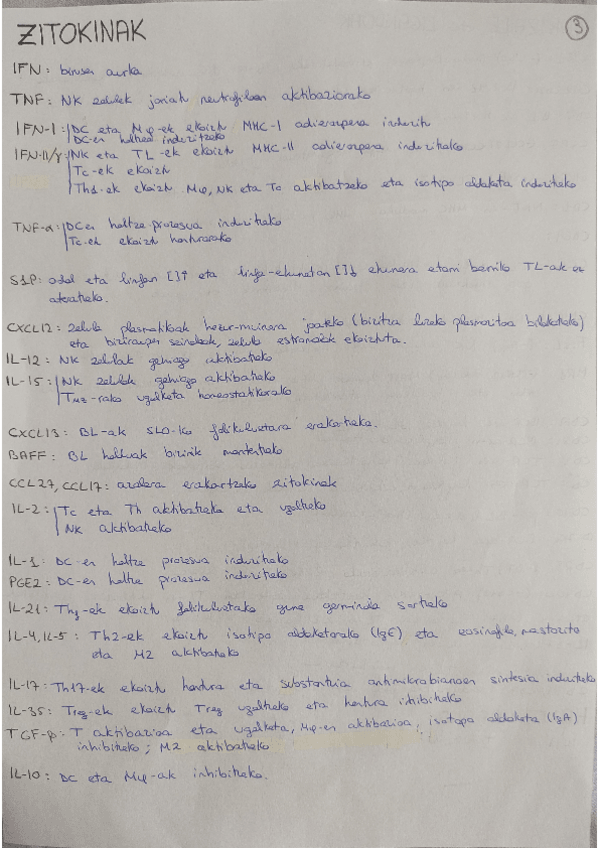 ZITOKINAK
3
IFN: birusen aurka
TNF: NK zelulek jariatu neutrofiloen aktibaziorako
IFN-I: DC eta Mφ-ek ekoiztu MHC-I adierazpena induzitu
DC-en heltzea induzitzeko
IFN-II/γ: NK eta TL-ek ekoiztu MHC-II adierazpena induzitzeko
Tc-ek ekoiztu
Th1-ek ekoiztu Mφ, NK eta Tc aktibatzeko eta isotipo aldaketa induzitzeko
TNF-α: DCen heltze prozesua induzitzeko
Tc-ek ekoiztu hanturarako
S1P: odol eta linfan []↑ eta linfa-ehunetan []↓ ehunera etorri berriko TL-ak
ateratzeko.
CXCL12: zelula plasmatikoak hezur-muinera joateko (bizitza luzeko plasmozitoa bilakatzeko)
eta biziraupen seinaleak, zelula estromalek ekoiztuta.
IL-12: NK zelulak gehiago aktibatzeko
IL-15: NK zelulak gehiago aktibatzeko
-rako ugalketa homeostatikorako
CXCL13: BL-ak SLO-ko folikuluetara erakartzeko.
BAFF: BL helduak bizirik mantentzeko
CCL27, CCL17: azalera erakartzeko zitokinak
IL-2: Tc eta Th aktibatzeko eta ugaltzeko
NK aktibatzeko
IL-1: DC-en heltze prozesua induzitzeko
PGE2: DC-en heltze prozesua induzitzeko
IL-21: Thf-ek ekoiztu folikuluetako gune germinala sortzeko
IL-4, IL-5: Th2-ek ekoiztu isotipo aldaketarako (IgE) eta eosinofilo, mastozito
eta M2 aktibatzeko
IL-17: Th17-ek ekoiztu hantura eta substantzia antimikrobianoen sintesia induzitzeko
IL-35: Treg-ek ekoiztu Treg ugaltzeko eta hantura inhibitzeko
TGF-β: T aktibazioa eta ugalketa, Mφ-en aktibazioa, isotipo aldaketa (IgA)
inhibitzeko; M2 aktibatzeko
IL-10: DC eta Mφ-ak inhibitzeko.